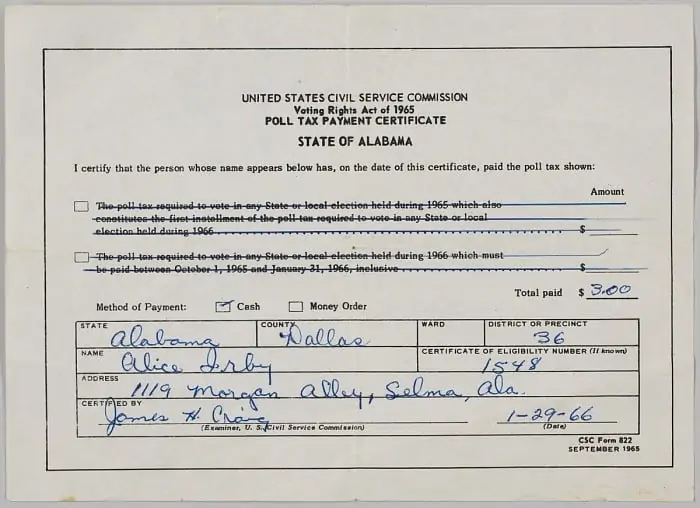 UNITED STATES CIVIL SERVICE COMMISSION
Voting Rights Act of 1965
POLL TAX PAYMENT CERTIFICATE
STATE OF ALABAMA
I certify that the person whose name appears below has, on the date of this certificate, paid the poll tax shown:
Amount
The poll tax required to vote in any State or local election held during 1965 which also
constitutes the first installment of the poll tax required to vote in any State or local
election held during 1966 $
The poll tax required to vote in any State or local election held during 1966 which must
be paid between October 1, 1965 and January 31, 1966, inclusive $
Total paid $ 3.00
Method of Payment: Cash Money Order
STATE COUNTY WARD DISTRICT OR PRECINCT
Alabama Dallas 36
NAME CERTIFICATE OF ELIGIBILITY NUMBER (If known)
Alice Irby 1548
ADDRESS
1119 Morgan Alley, Selma, Ala.
CERTIFIED BY
James H. Craig 1-29-66
(Examiner, U. S. Civil Service Commission) (Date)
CSC Form 822
SEPTEMBER 1965